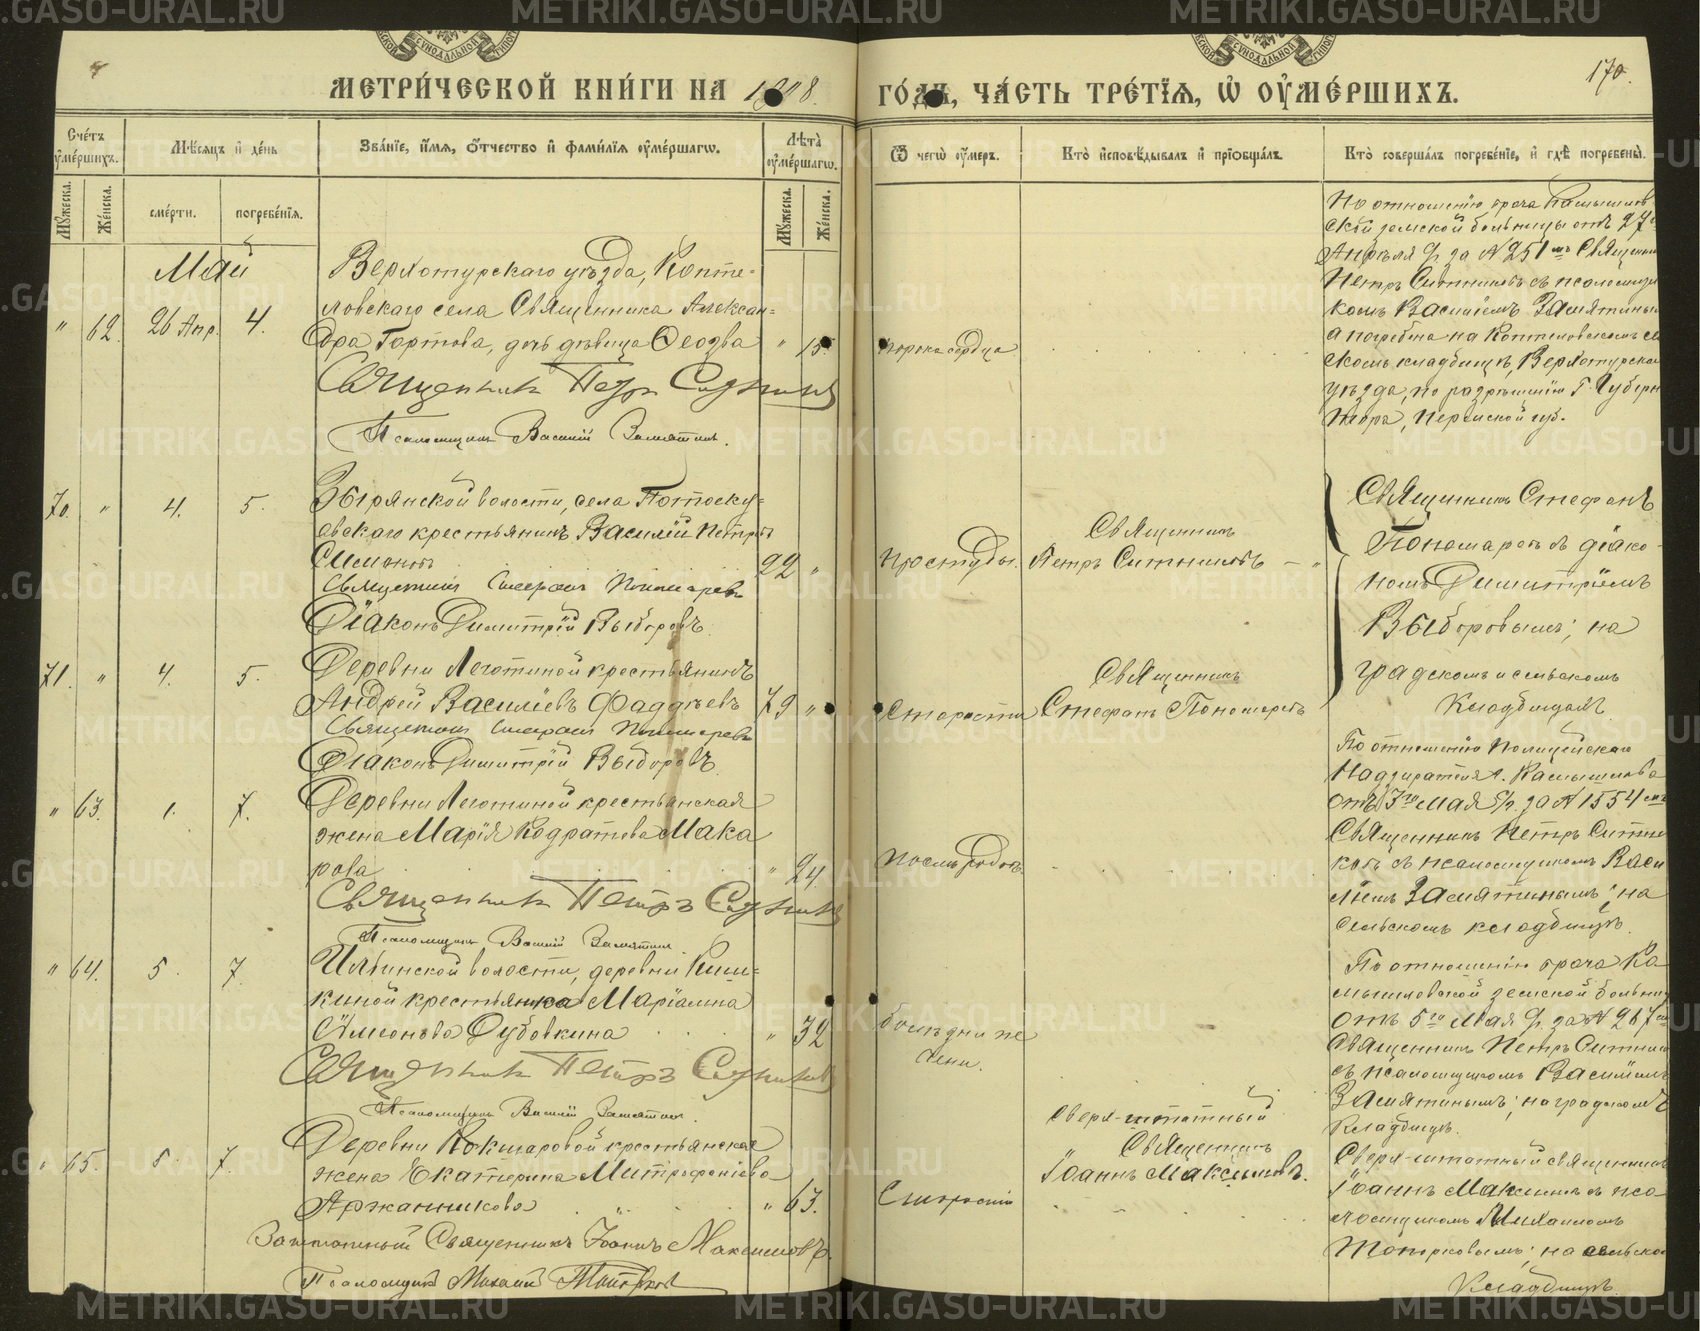 МЕТРИ́ЧЕСКОЙ КНИ́ГИ НА 1908. ГО́ДЪ, ЧА́СТЬ ТРЕ́ТЇѦ, Ѡ҆ ОУ҆МЕ́РШИХЪ.
170.
Сче́тъ оу҆ме́ршихъ.
Мѣ́сѧцъ и҆ де́нь
Зва́нїе, и҆́мѧ, о҆́тчество и҆ фами́лїѧ оу҆ме́ршагѡ.
Лѣ́та оу҆ме́ршагѡ.
Ѿ чегѡ̀ оу҆́меръ.
Кто̀ и҆сповѣ́дывалъ и҆ прїѡбща́лъ.
Кто̀ соверша́лъ погребе́нїе, и҆ гдѣ̀ погребены̀.
Мꙋ́жеска.
Же́нска.
сме́рти.
погребе́нїѧ.
Мꙋ́жеска.
Же́нска.
Май
Верхотурскаго уѣзда, Копте-
ловскаго села Священника Алексан-
" 62. 26 Апр. 4. дра Гортова, дочь дѣвица Ѳеозва " 15
порока сердца
Священникъ Петръ Ситниковъ
Псаломщикъ Василій Замятинъ.
По отношенію врача Камышлов
ской земской больницы отъ 27
Апрѣля с/г. за № 251 мъ Священник
Петръ Ситниковъ съ псаломщи
комъ Василіемъ Замятины
а погребена на Коптеловскомъ се
скомъ кладбищѣ, Верхотурска
уѣзда, по разрѣшенію Г. Губерн
тора, Пермской губ.
70. " 4. 5. Зырянской волости, села
крестьянинъ Василій Петровъ
Симоновъ 22 "
Священникъ Стефанъ Пономаревъ
Діаконъ Димитрій Выборовъ.
Простуды.
Священникъ
Петръ Ситниковъ
Священникъ Стефанъ
Пономаревъ съ діако-
номъ Димитріемъ
Выборовымъ; на
градскомъ и сельскомъ
Кладбищахъ.
71. " 4. 5. Деревни Леготиной крестьянинъ
Андрей Василіевъ Фаддѣевъ 79 "
Священникъ Стефанъ Пономаревъ
Діаконъ Димитрій Выборовъ
Старости
Священникъ
Стефанъ Пономаревъ
" 63. 1. 7. Деревни Леготиной крестьянская
жена Марія Кодратова Мака
рова " 24.
Священникъ Петръ Ситниковъ
Псаломщикъ Василій Замятинъ
Послѣ родовъ.
По отношенію Полицейскаго
Надзирателя г. Камышлова
отъ 3го Мая с/г. за № 1554 мъ
Священникъ Петръ Ситни
ковъ съ псаломщикомъ Васи
ліемъ Замятинымъ; на
сельскомъ кладбищѣ.
" 64. 5. 7. Ильинской волости, деревни
крестьянка Маріамна
Симонова Дубовкина " 32
Священникъ Петръ Ситниковъ
Псаломщикъ Василій Замятинъ
болѣзни пе
чени.
По отношенію врача Ка
мышловской земской больниц
отъ 5го Мая с/г. за № 267 мъ
Священникъ Петръ Ситник
съ псаломщикомъ Василіемъ
Замятинымъ; на градскомъ
Кладбищѣ.
" 65. 5. 7. Деревни Кокшаровой крестьянская
жена Екатерина Митрофаніева
Аржанникова " 63.
Заштатный Священникъ Іоаннъ Максимовъ.
Псаломщикъ Михаилъ Топорковъ
Старости
Сверх-штатный
Священникъ
Іоаннъ Максимовъ.
Сверх-штатный священникъ
Іоаннъ Максимовъ съ пса
ломщикомъ Михаиломъ
Топорковымъ; на сельско
Кладбищѣ.